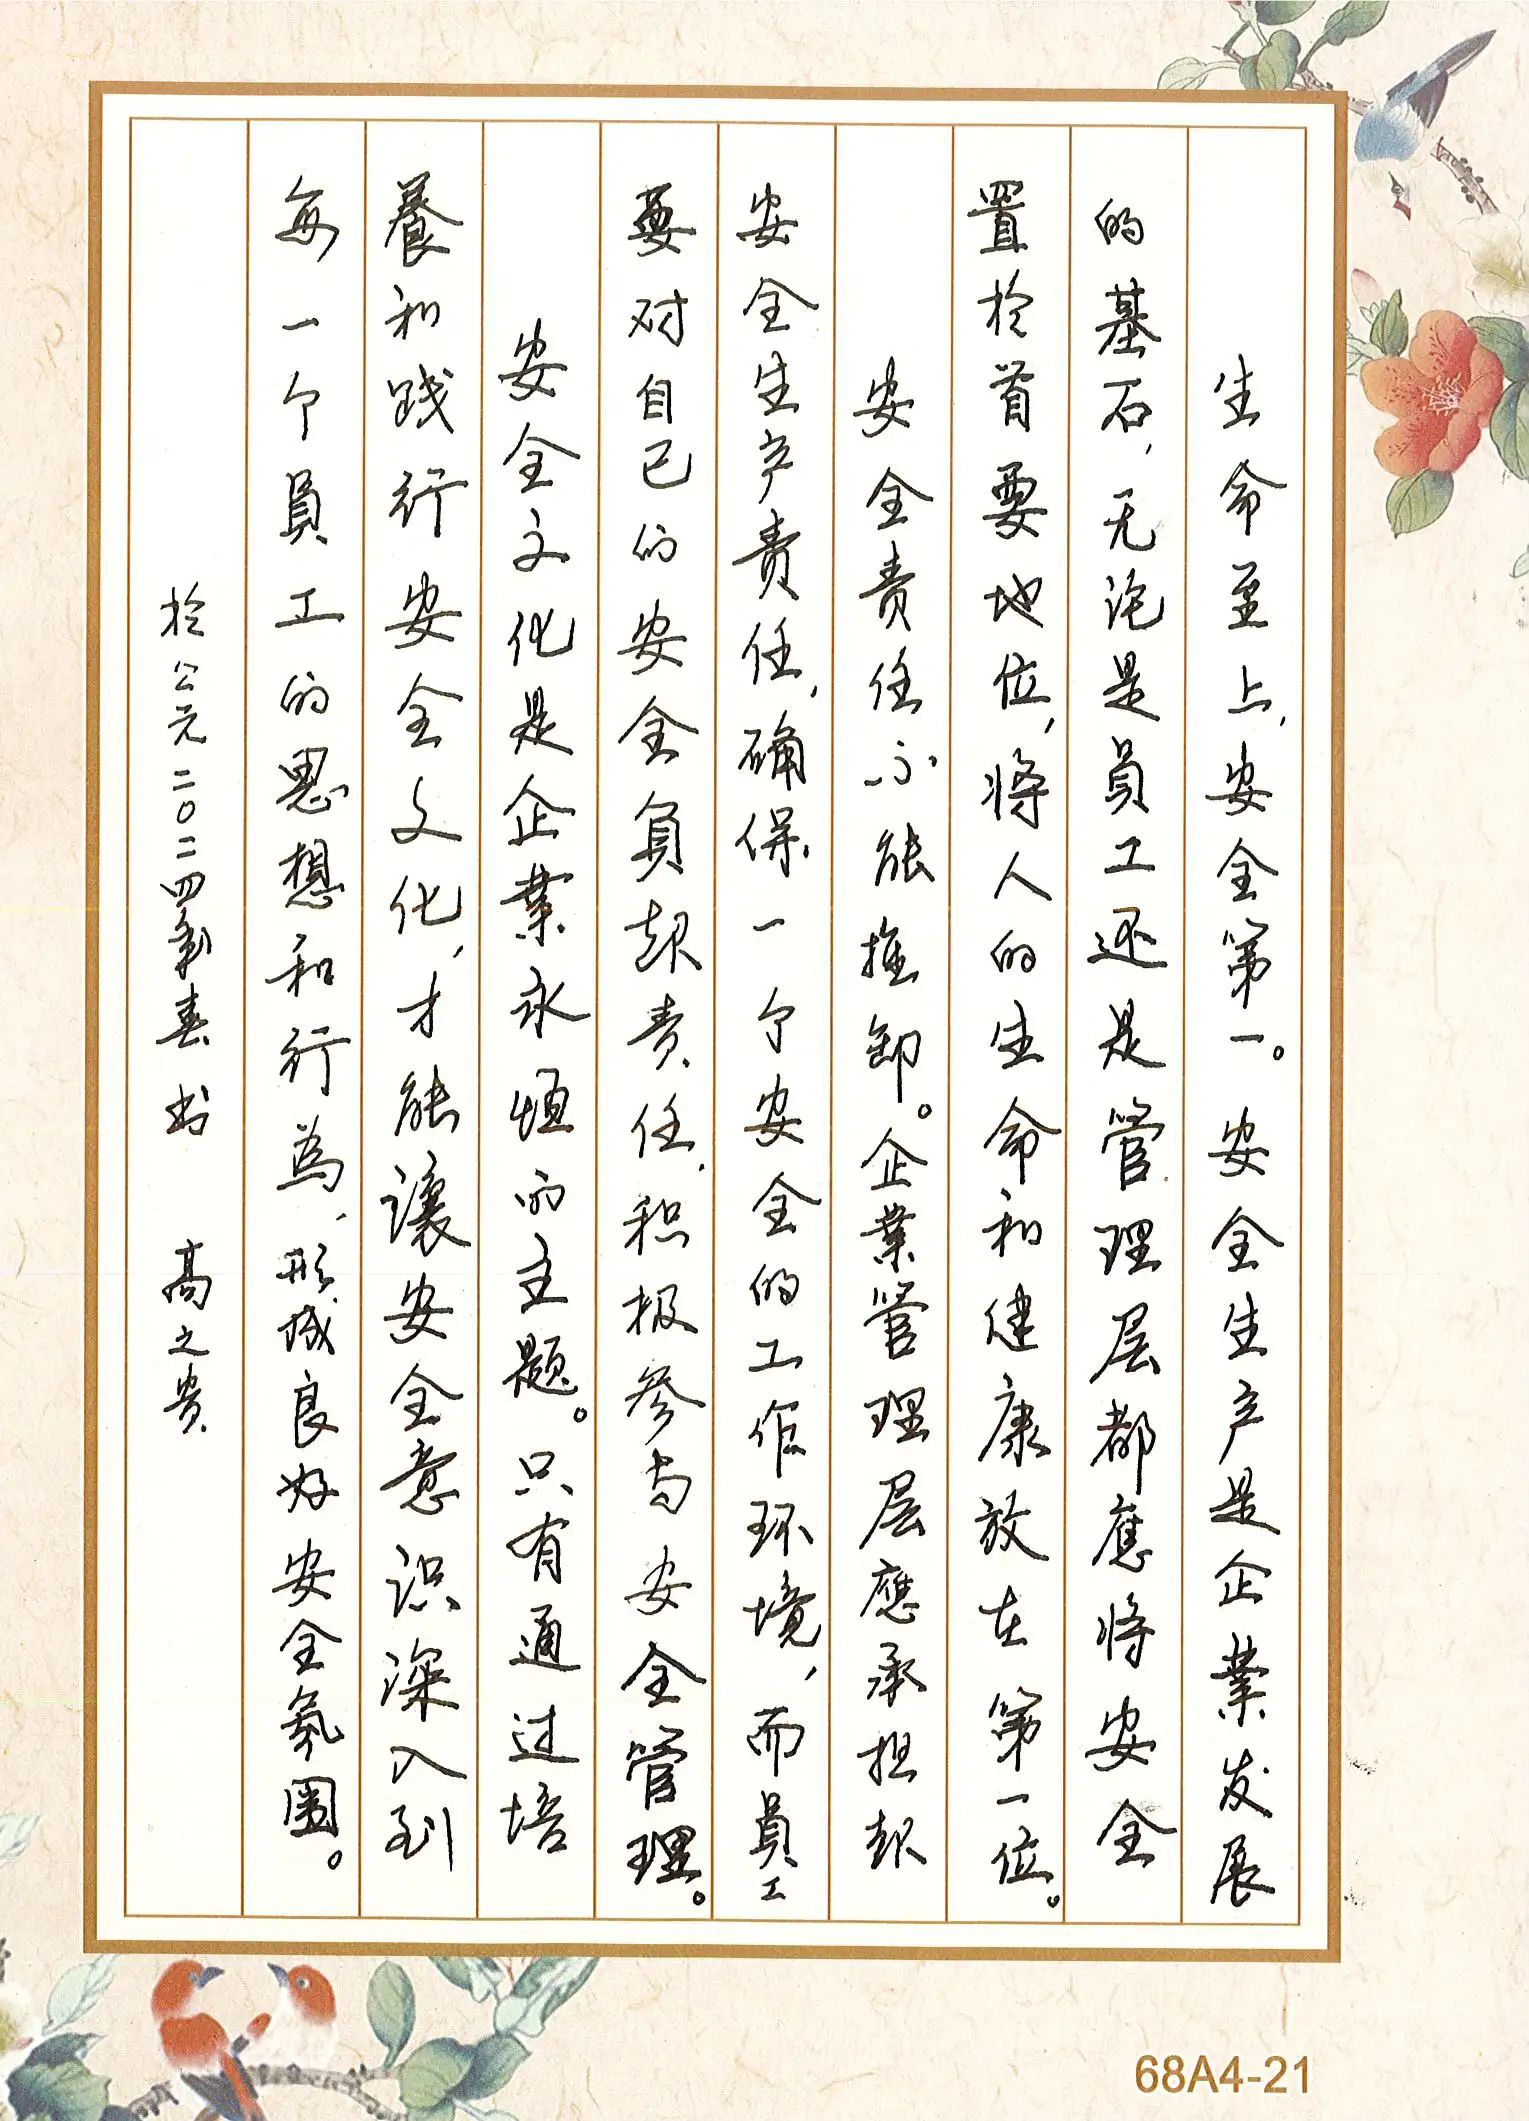 生命至上,安全第一。安全生产是企業发展
的基石,无论是員工还是管理层都應将安全
置於首要地位,将人的生命和健康放在第一位。
安全责任不能推卸。企業管理层應承担起
安全生产责任,确保一个安全的工作环境,而員工
要对自己的安全負起责任,积极参与安全管理。
安全文化是企業永恒的主题。只有通过培
養和践行安全文化,才能讓安全意识深入到
每一个員工的思想和行為,形成良好安全氛围。
於公元二〇二四年春书 高之贵
68A4-21